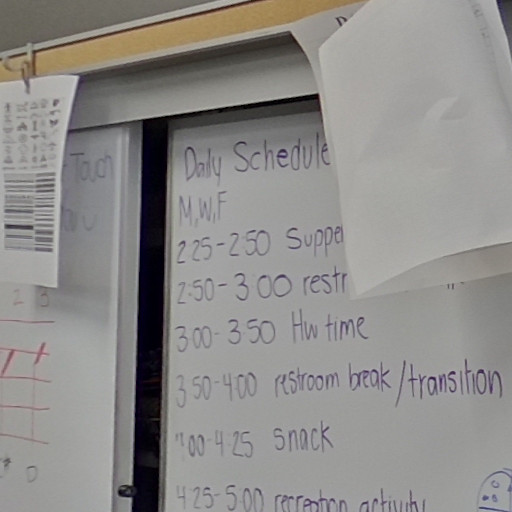 Touch
Daily Schedule
M,W,F
2:25-2:50 Suppe
2:50-3:00 restr
3:00-3:50 Hw time
3:50-4:00 restroom break/transition
4:00-4:25 snack
4:25-5:00 recreation activity
2 3
0